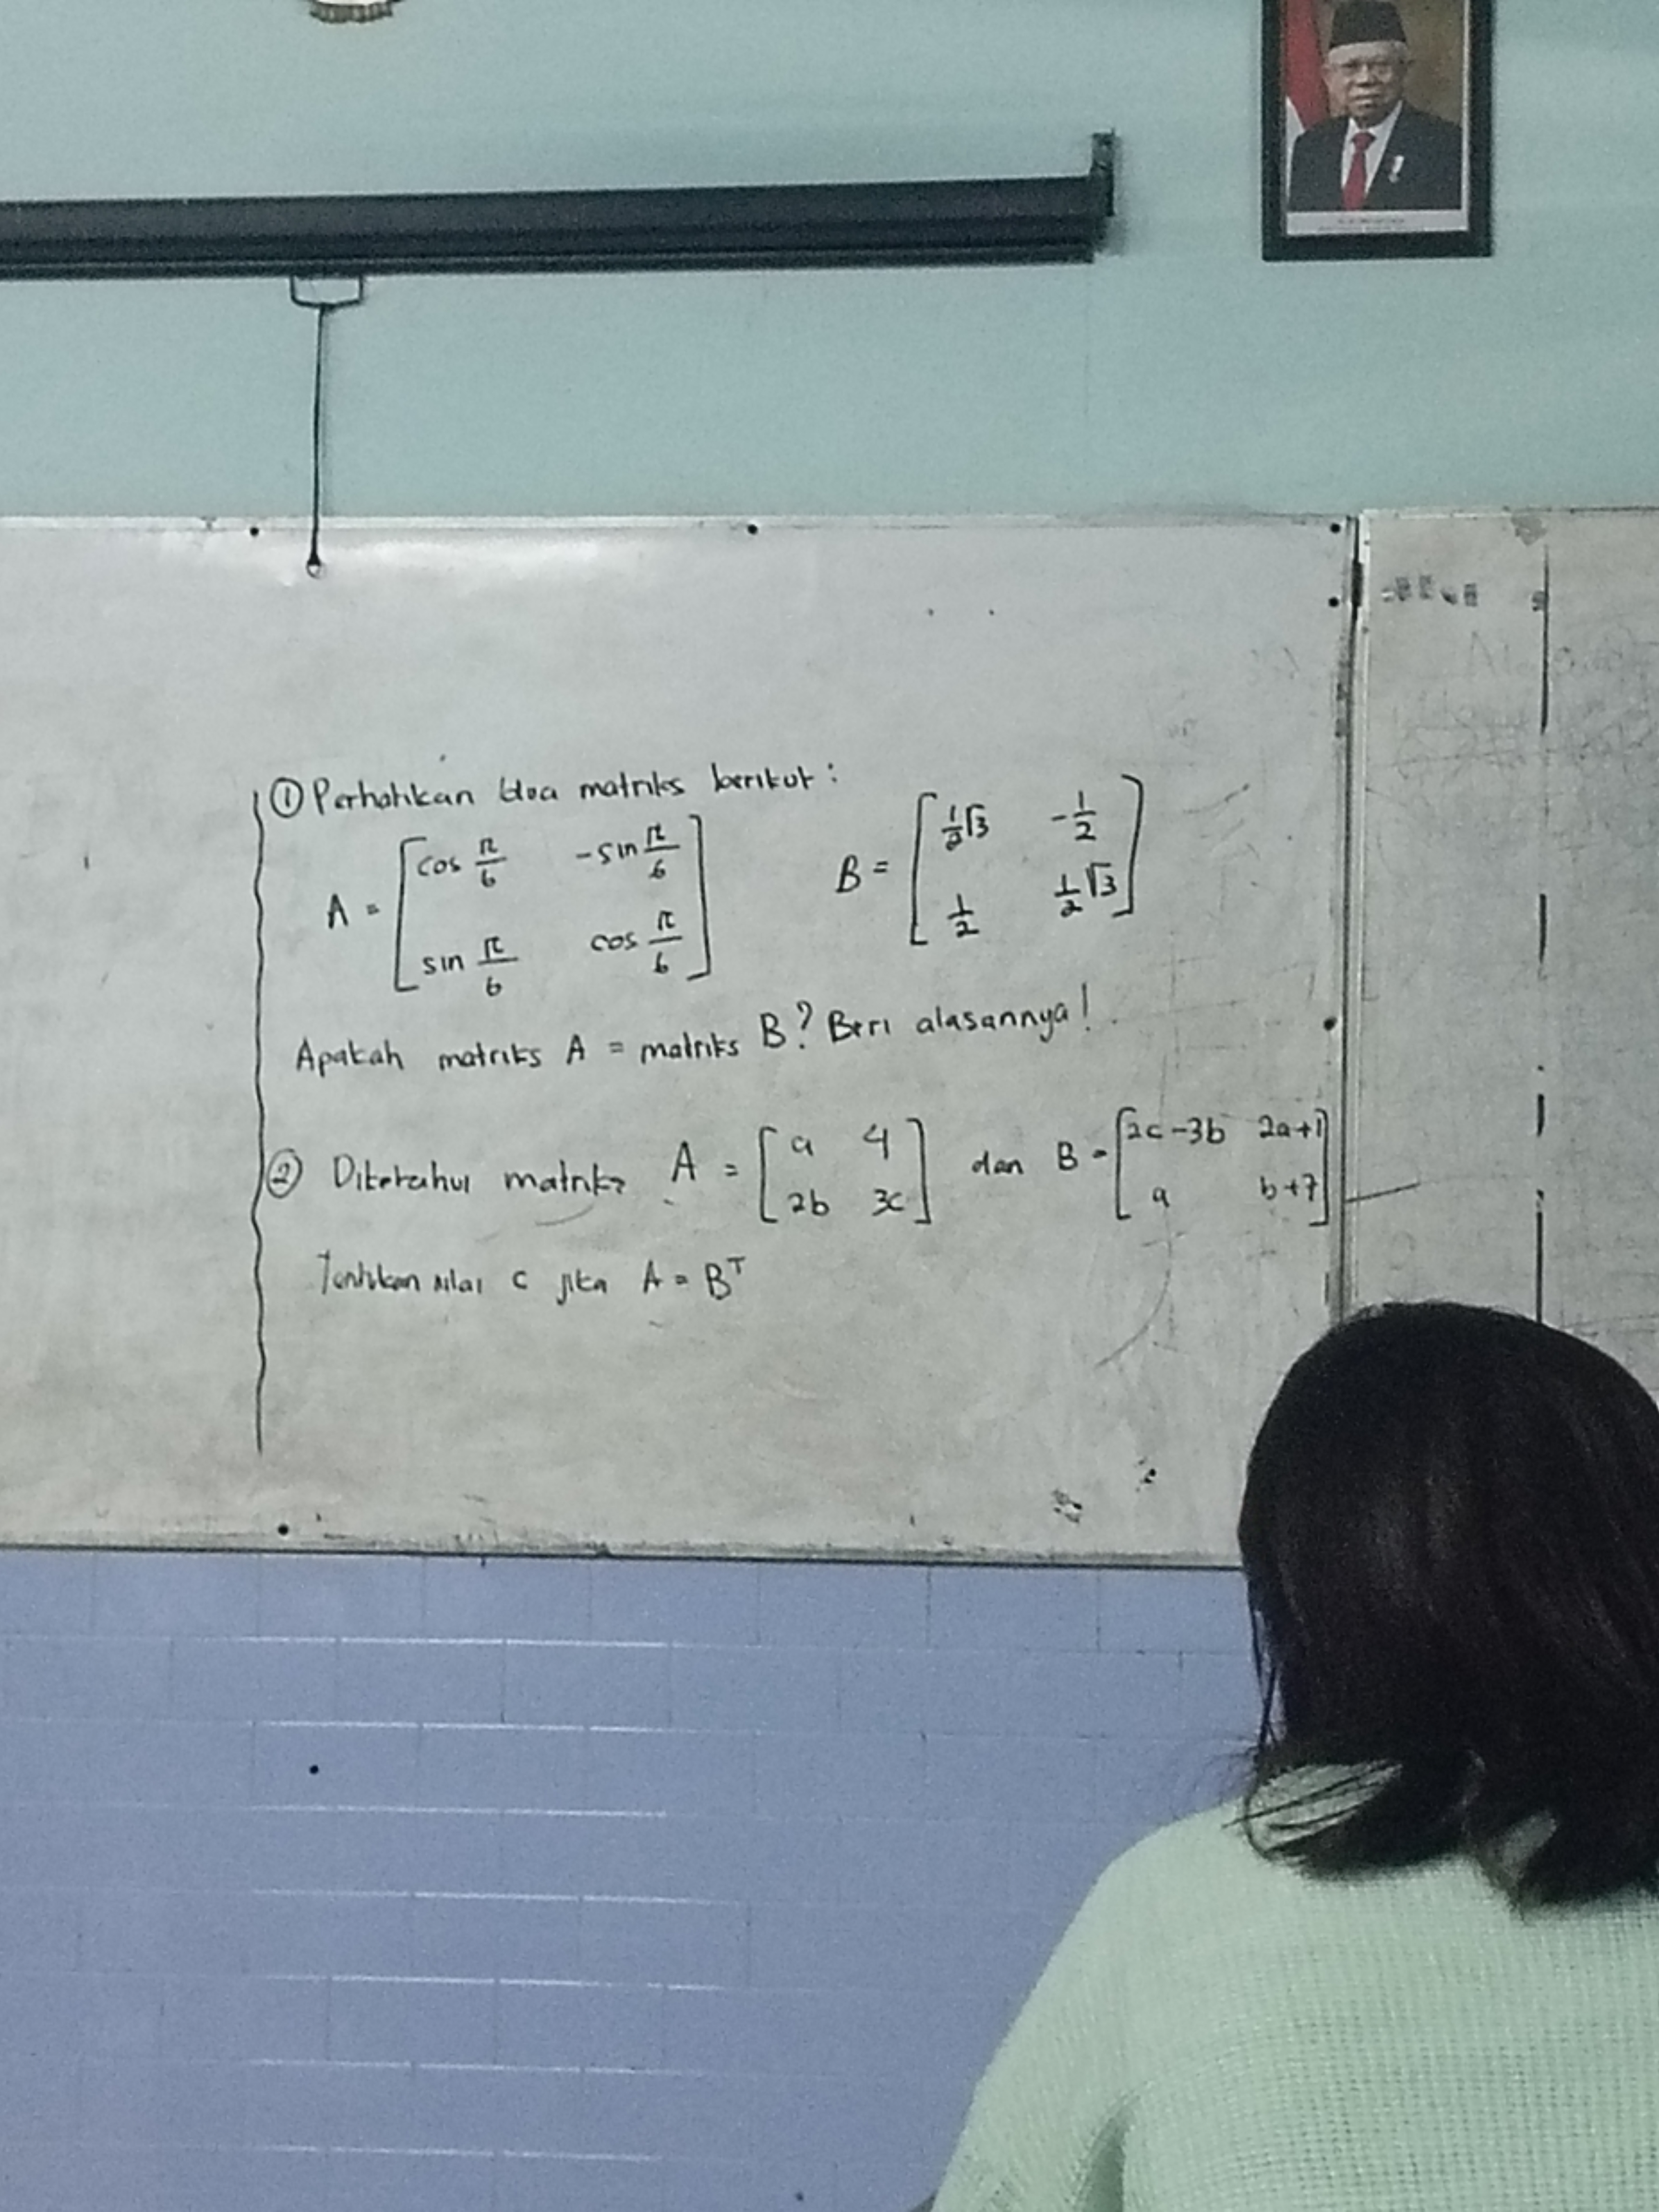 ① Perhatikan dua matriks berikut :
A = [cos π/6 -sin π/6
sin π/6 cos π/6]
B = [1/2√3 -1/2
1/2 1/2√3]
Apakah matriks A = matriks B? Beri alasannya!
② Diketahui matriks A = [a 4
2b 3c] dan B = [2c-3b 2a+1
a b+7]
Tentukan nilai c jika A = Bᵀ